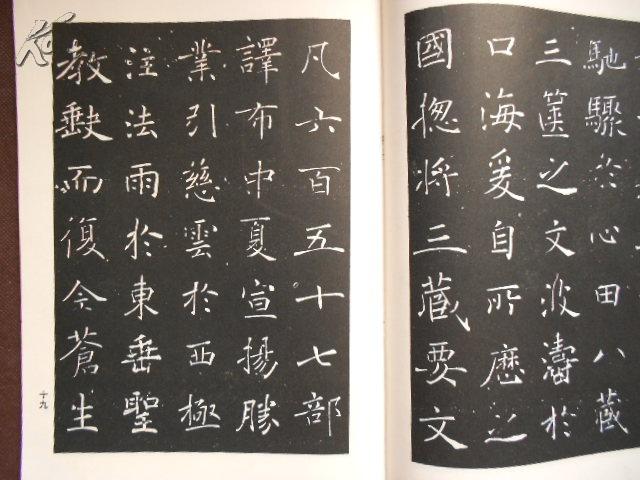 馳驟於心田八藏
三篋之文波濤於
口海爰自所歷之
國揔將三藏要文
凡六百五十七部
譯布中夏宣揚勝
業引慈雲於西極
注法雨於東垂聖
教缺而復全蒼生
十九